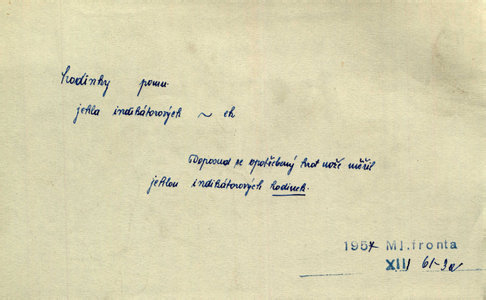 hodinky pomn.
jehla indikátorových ~ ek
Doposud se opotřebovaný hrot nože měřil
jehlou indikátorových hodinek.
1957 Ml.fronta
XII/ 61-3a